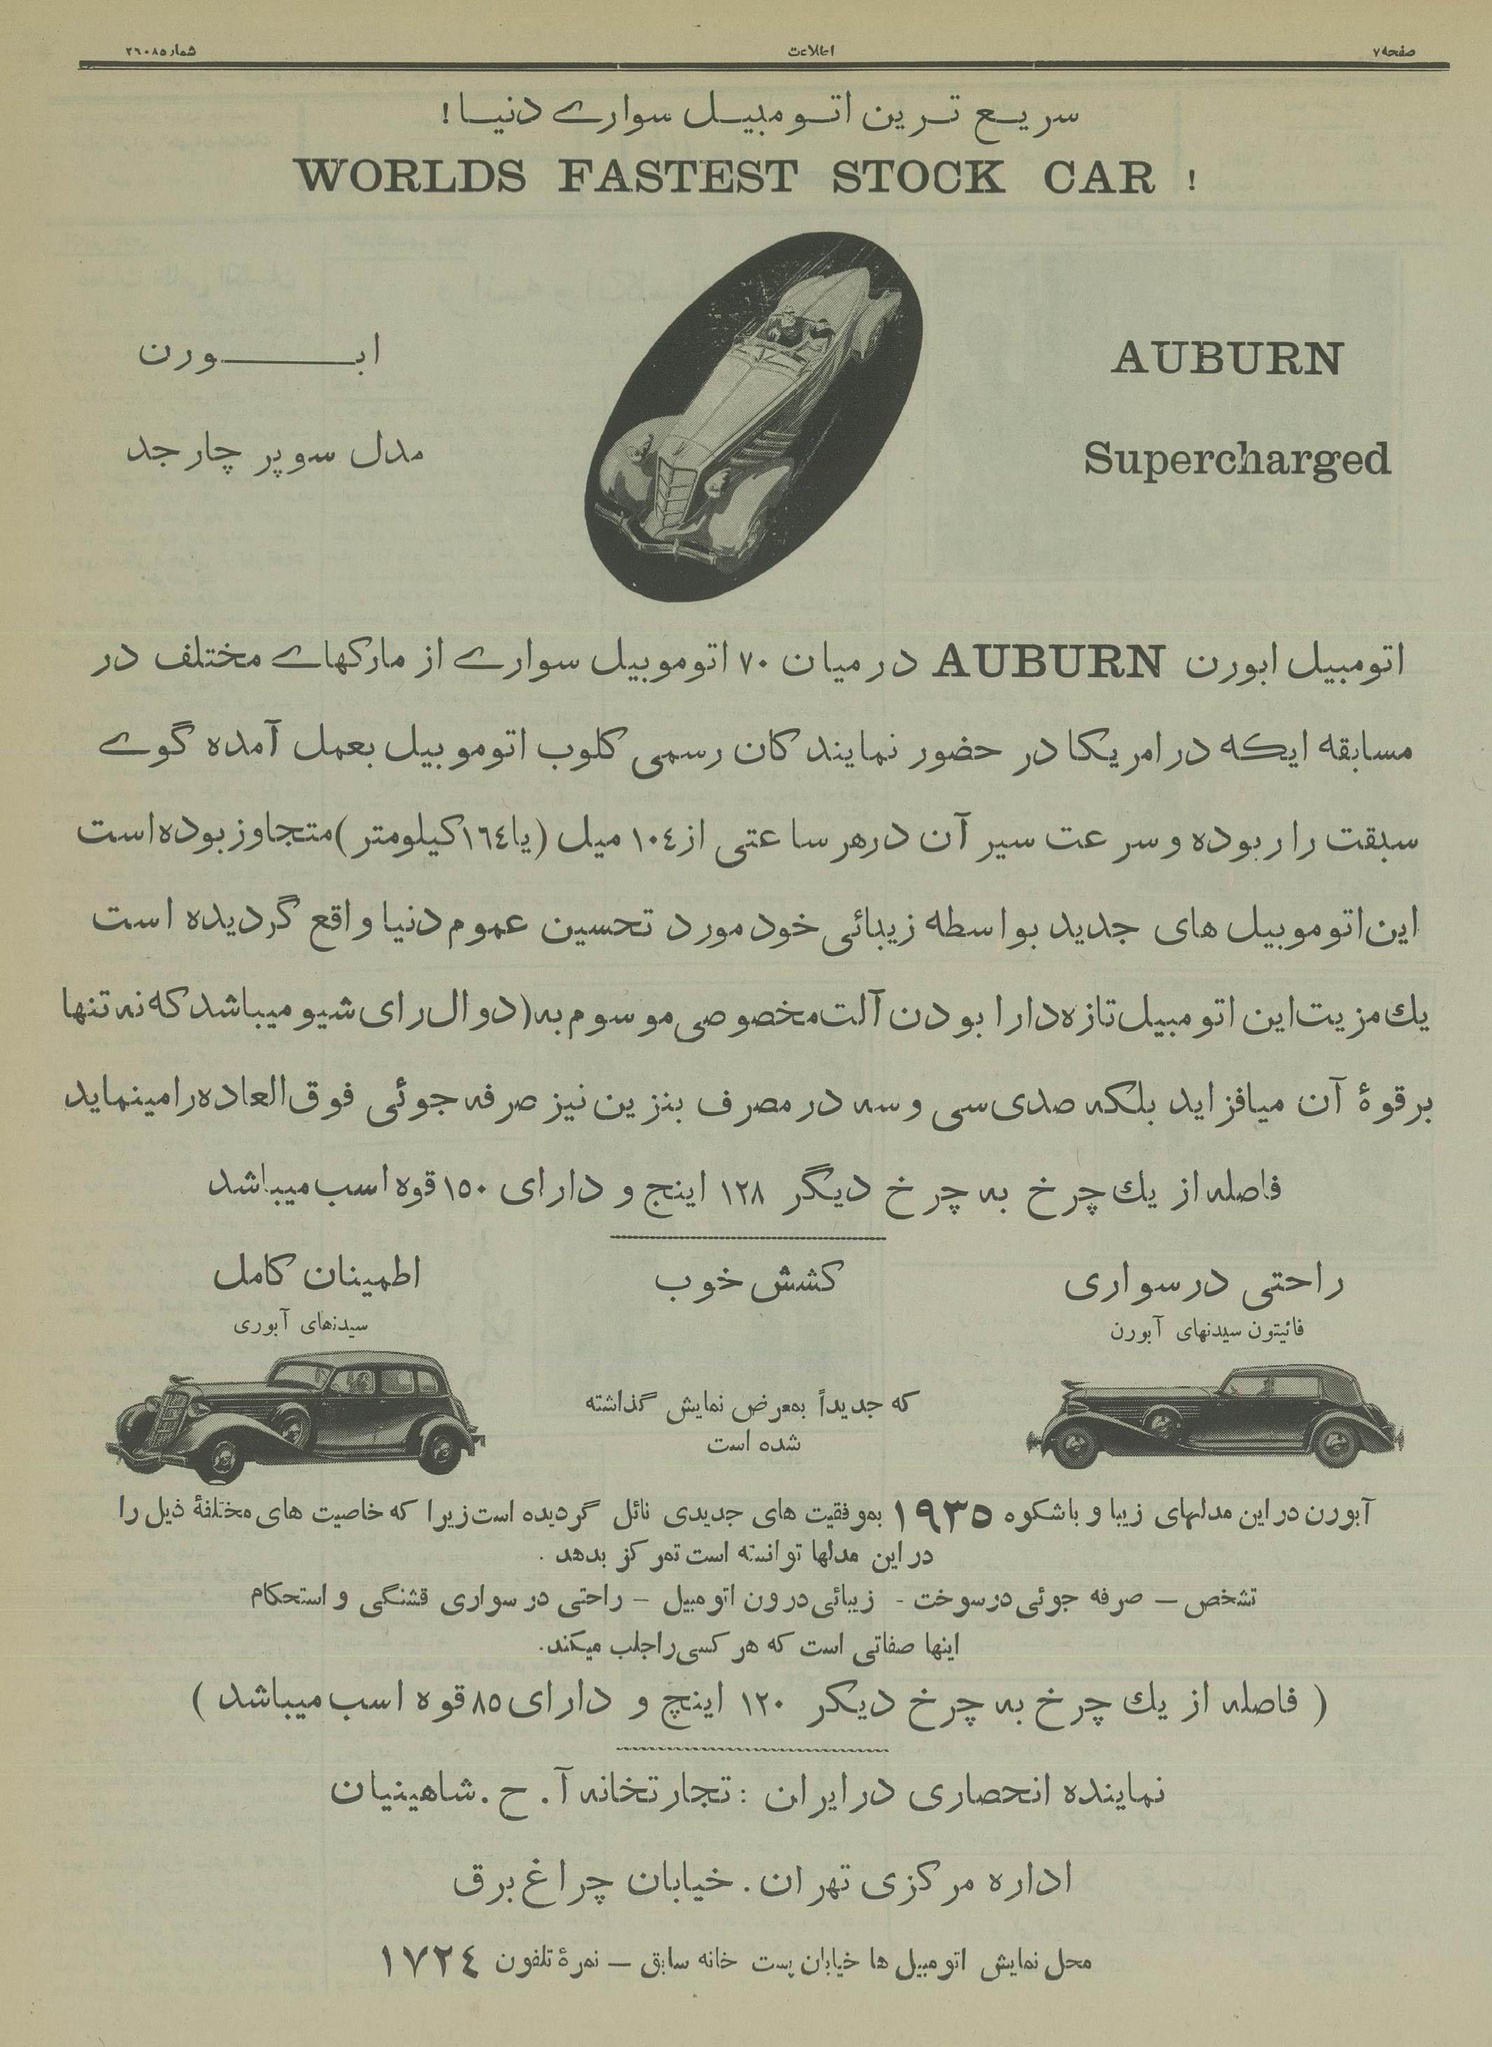 صفحه ۷
اطلاعات
شماره ۲۶۰۸۵
سریع ترین اتومبیل سواری دنیا!
WORLDS FASTEST STOCK CAR !
AUBURN
Supercharged
ابورن
مدل سوپر چارجد
اتومبیل ابورن AUBURN در میان ۷۰ اتوموبیل سواری از مارکهای مختلف در
مسابقه ایکه در امریکا در حضور نمایندکان رسمی کلوب اتوموبیل بعمل آمده گوی
سبقت را ربوده و سرعت سیر آن در هر ساعتی از ۱۰٤ میل (یا ۱٦٤ کیلومتر) متجاوز بوده است
این اتوموبیل های جدید بواسطه زیبائی خود مورد تحسین عموم دنیا واقع گردیده است
یك مزیت این اتومبیل تازه دارا بودن آلت مخصوصی موسوم به (دوال رای شیو میباشد که نه تنها
بر قوۀ آن میافزاید بلکه صدی سی و سه در مصرف بنزین نیز صرفه جوئی فوق العاده را مینماید
فاصله از یك چرخ به چرخ دیگر ۱۲۸ اینج و دارای ۱۵۰ قوه اسب میباشد
راحتی در سواری
کشش خوب
اطمینان کامل
فائیتون سیدنهای آبورن
سیدنهای آبوری
که جدیداً بمعرض نمایش گذاشته
شده است
آبورن در این مدلهای زیبا و باشکوه ۱۹۳۵ بموفقیت های جدیدی نائل گردیده است زیرا که خاصیت های مختلفۀ ذیل را
در این مدلها توانسته است تمرکز بدهد .
تشخص – صرفه جوئی در سوخت - زیبائی درون اتومبیل – راحتی در سواری قشنگی و استحکام
اینها صفاتی است که هر کسی را جلب میکند.
( فاصله از یك چرخ به چرخ دیکر ۱۲۰ اینچ و دارای ۸۵ قوه اسب میباشد )
نماینده انحصاری در ایران : تجارتخانه آ. ح. شاهینیان
اداره مرکزی تهران . خیابان چراغ برق
محل نمایش اتومبیل ها خیابان پست خانه سابق – نمرۀ تلفون ۱۷۲٤